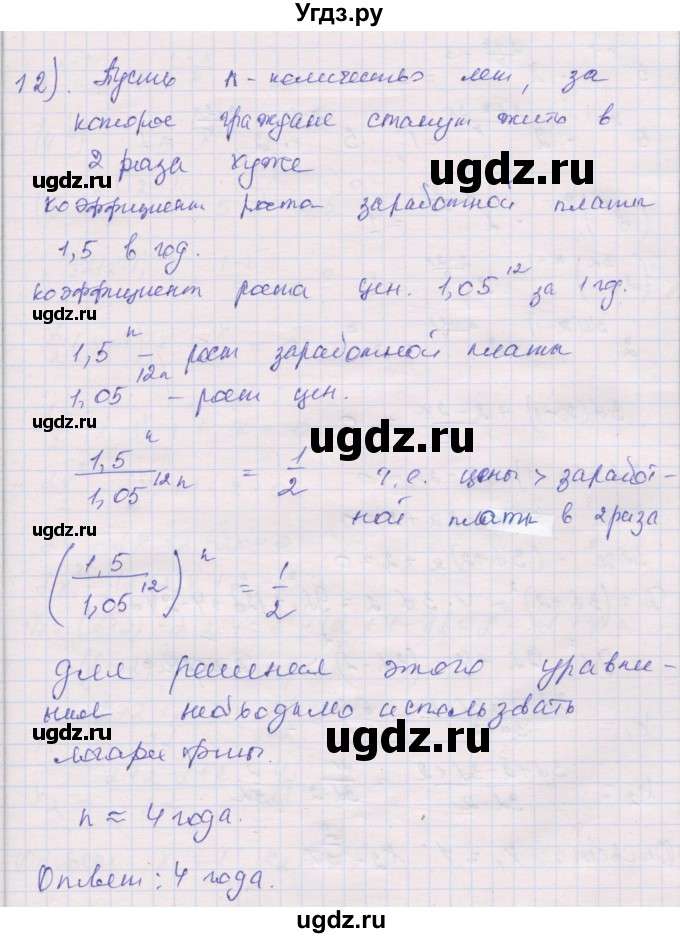 Угдз.ру
12). Пусть n - количество лет, за
которое граждане станут жить в
2 раза хуже
коэффициент роста заработной платы
1,5 в год.
коэффициент роста цен. 1,05^12 за 1 год.
1,5^n - рост заработной платы
1,05^12n - рост цен.
1,5^n / 1,05^12n = 1/2 т.е. цены > заработ-
ной платы в 2 раза
(1,5 / 1,05^12)^n = 1/2
для решения этого уравне-
ния необходимо использовать
логарифмы.
n ≈ 4 года.
Ответ: 4 года.
ugdz.ru
ugdz.ru
ugdz.ru
ugdz.ru
ugdz.ru
ugdz.ru
ugdz.ru
ugdz.ru
ugdz.ru
ugdz.ru
ugdz.ru